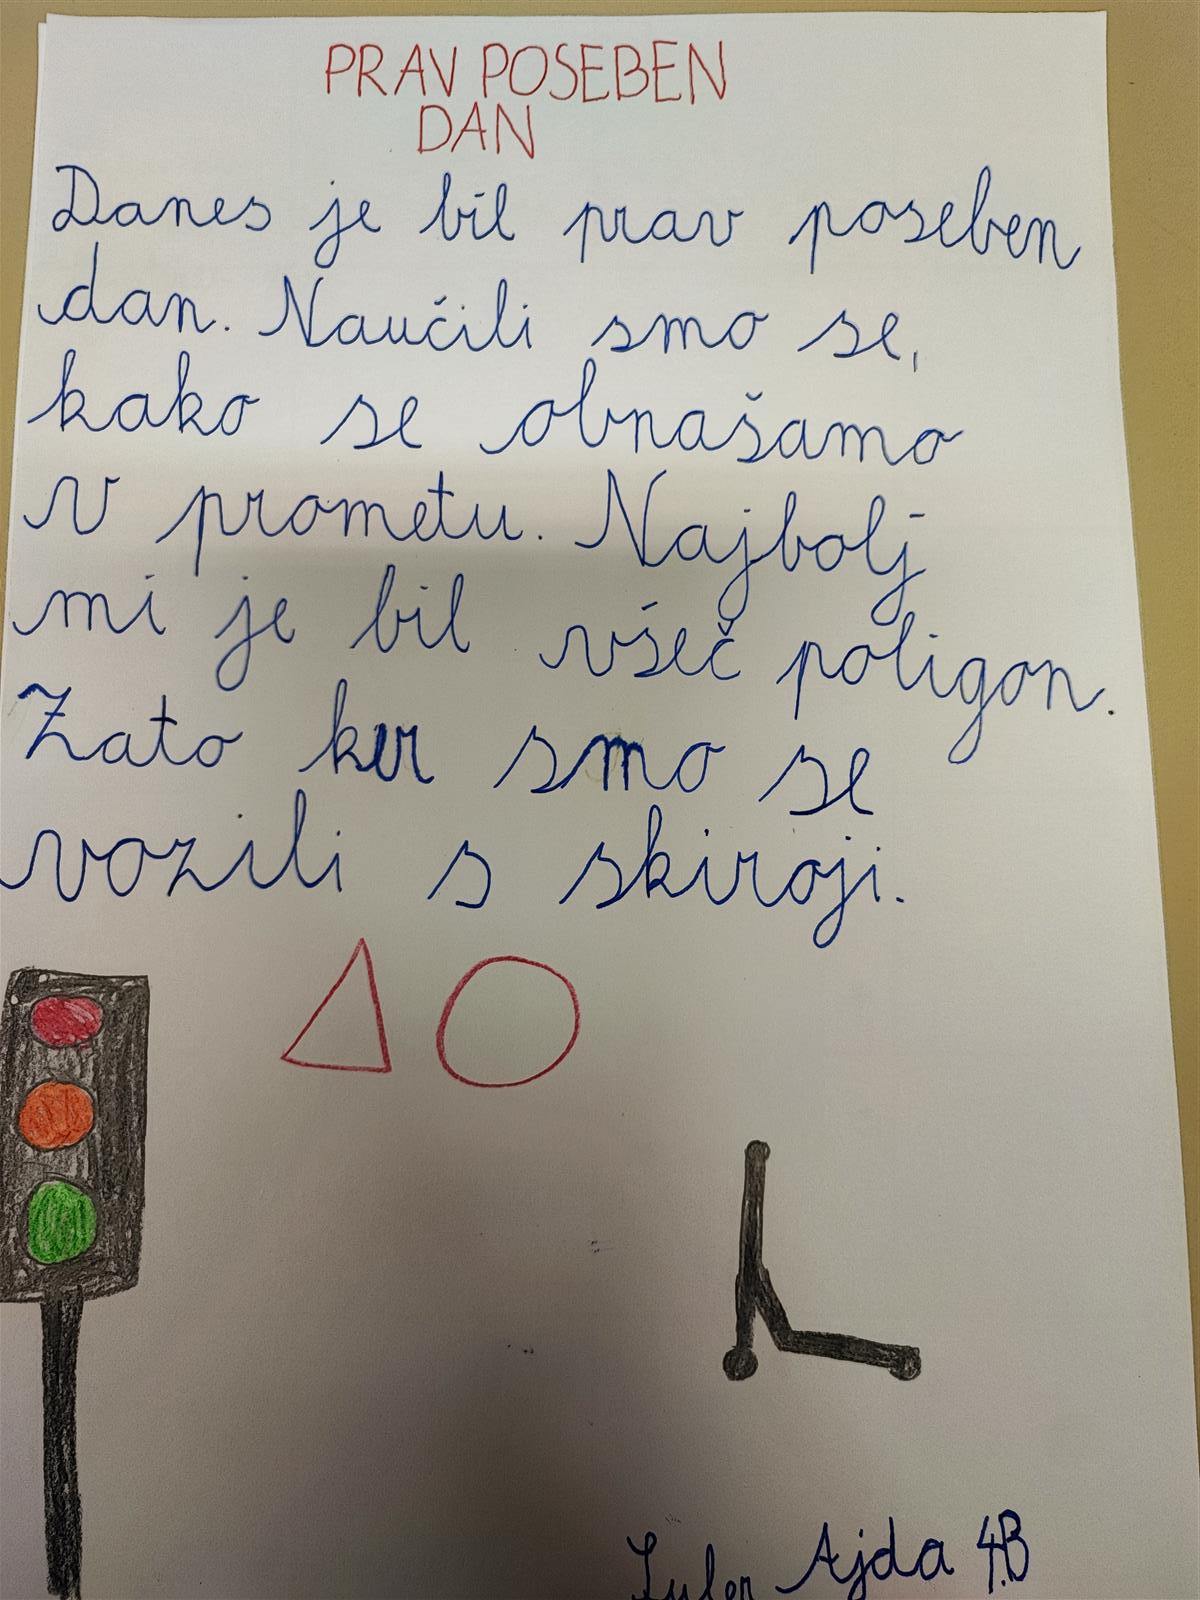 PRAV POSEBEN
DAN
Danes je bil prav poseben
dan. Naučili smo se,
kako se obnašamo
v prometu. Najbolj
mi je bil všeč poligon.
Zato ker smo se
vozili s skiroji.
Ajda 4.B